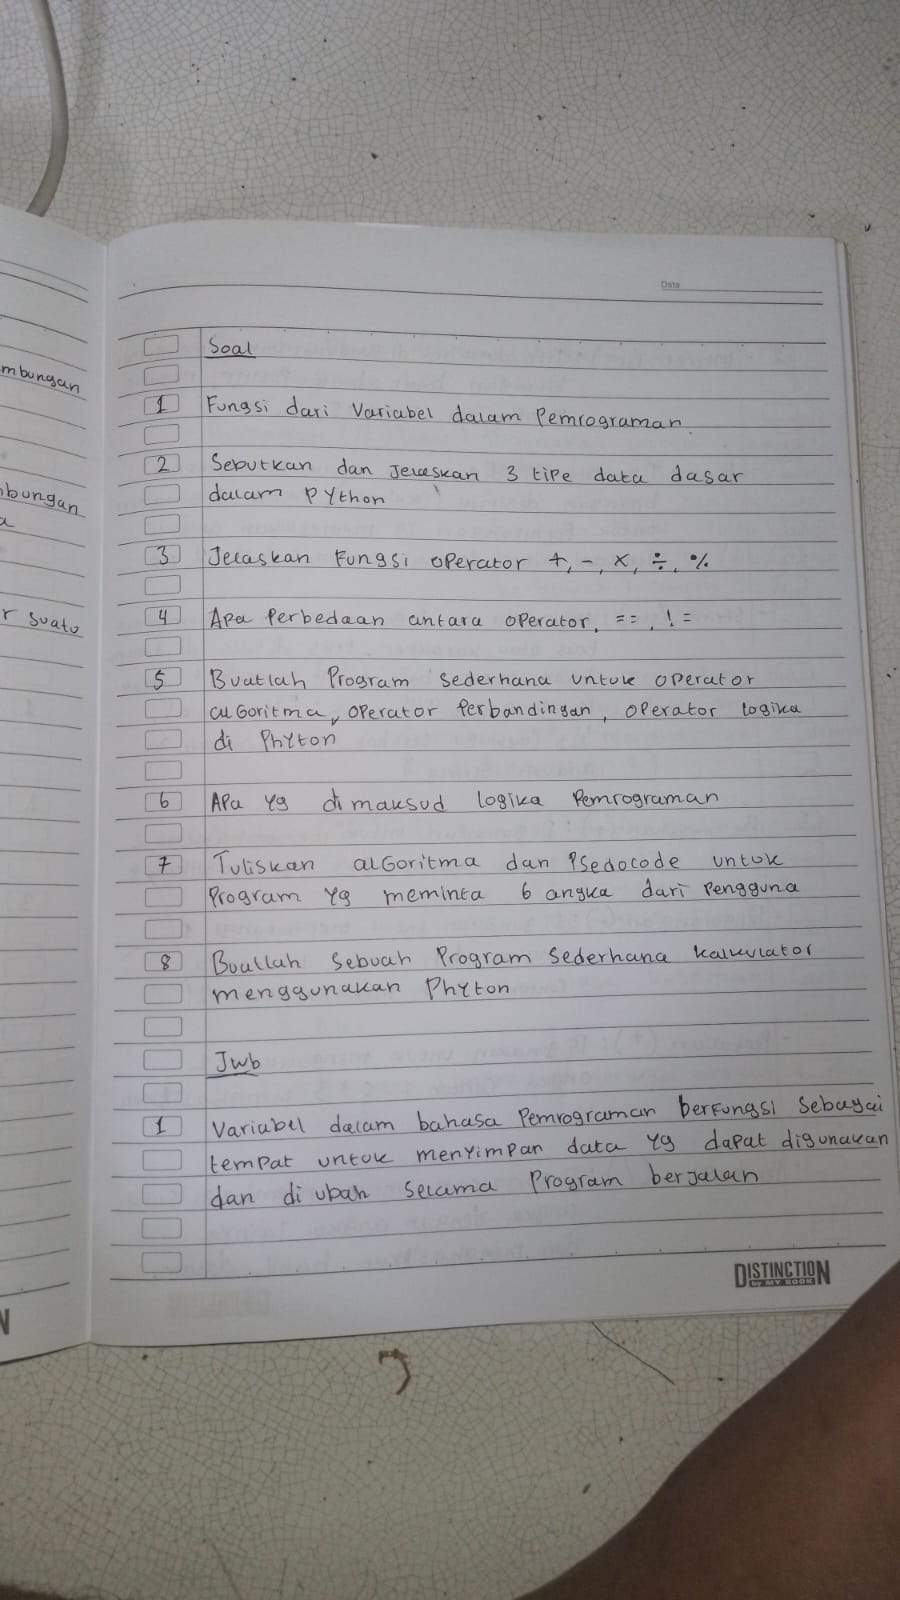 mbungan
bungan
a
r suatu
N
Date
Soal
1 Fungsi dari Variabel dalam Pemrograman
2 Sebutkan dan Jelaskan 3 tipe data dasar
dalam Python
3 Jelaskan Fungsi operator +, -, x, ÷, %
4 Apa Perbedaan antara operator, ==, !=
5 Buatlah Program Sederhana untuk operator
alGoritma, operator Perbandingan, operator logika
di Phyton
6 Apa yg di maksud logika Pemrograman
7 Tuliskan alGoritma dan Psedocode untuk
Program yg meminta 6 angka dari Pengguna
8 Buatlah Sebuah Program Sederhana kalkulator
menggunakan Phyton
Jwb
1 Variabel dalam bahasa Pemrograman berfungsi Sebagai
tempat untuk menyimpan data yg dapat digunakan
dan di ubah Selama Program berjalan
DISTINCTION
by MY BOOK